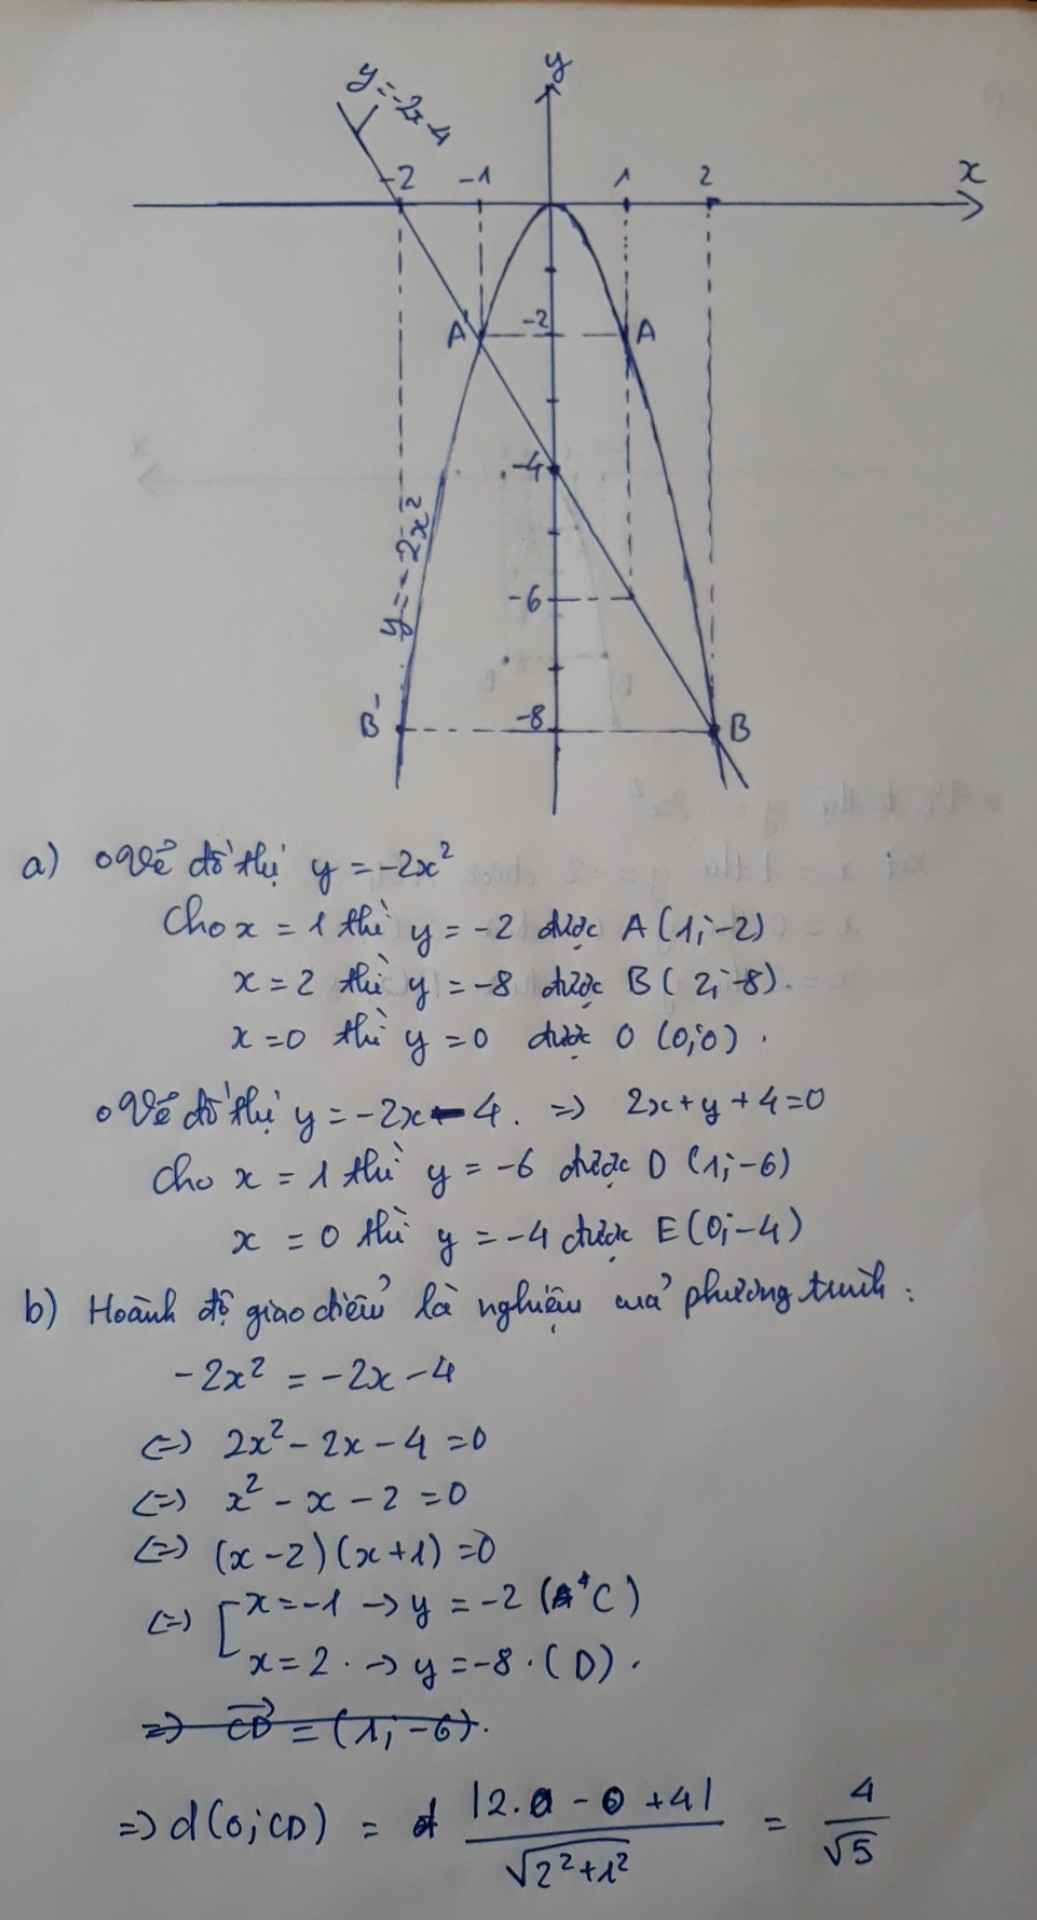 y
y=-2x-4
-2 -1 1 2 x
A' -2 A
-4
y=-2x²
-6
B' -8 B
a) o Vẽ đồ thị y = -2x²
Cho x = 1 thì y = -2 được A (1;-2)
x = 2 thì y = -8 được B ( 2;-8).
x = 0 thì y = 0 được O (0;0) .
o Vẽ đồ thị y = -2x - 4 . => 2x + y + 4 = 0
Cho x = 1 thì y = -6 được D (1;-6)
x = 0 thì y = -4 được E (0;-4)
b) Hoành độ giao điểm là nghiệm của phương trình :
-2x² = -2x - 4
<=> 2x² - 2x - 4 = 0
<=> x² - x - 2 = 0
<=> (x-2)(x+1) = 0
<=> [ x = -1 -> y = -2 ( C )
x = 2 . -> y = -8 . ( D ) .
=> CD = (1;-6).
=> d(O;CD) = |2.0 - 0 + 4| / √2²+1² = 4/√5